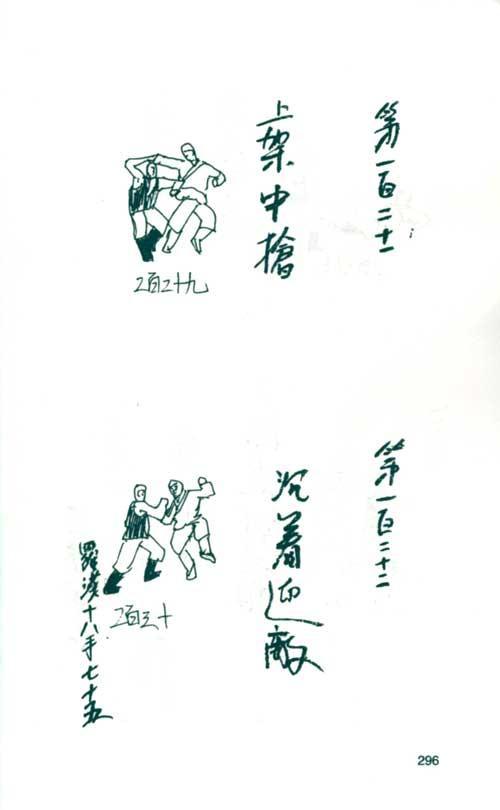 第一百二十一
上架中搶
二百二十九
第一百二十二
沉着迎敵
二百三十
羅漢十八手七十五
296